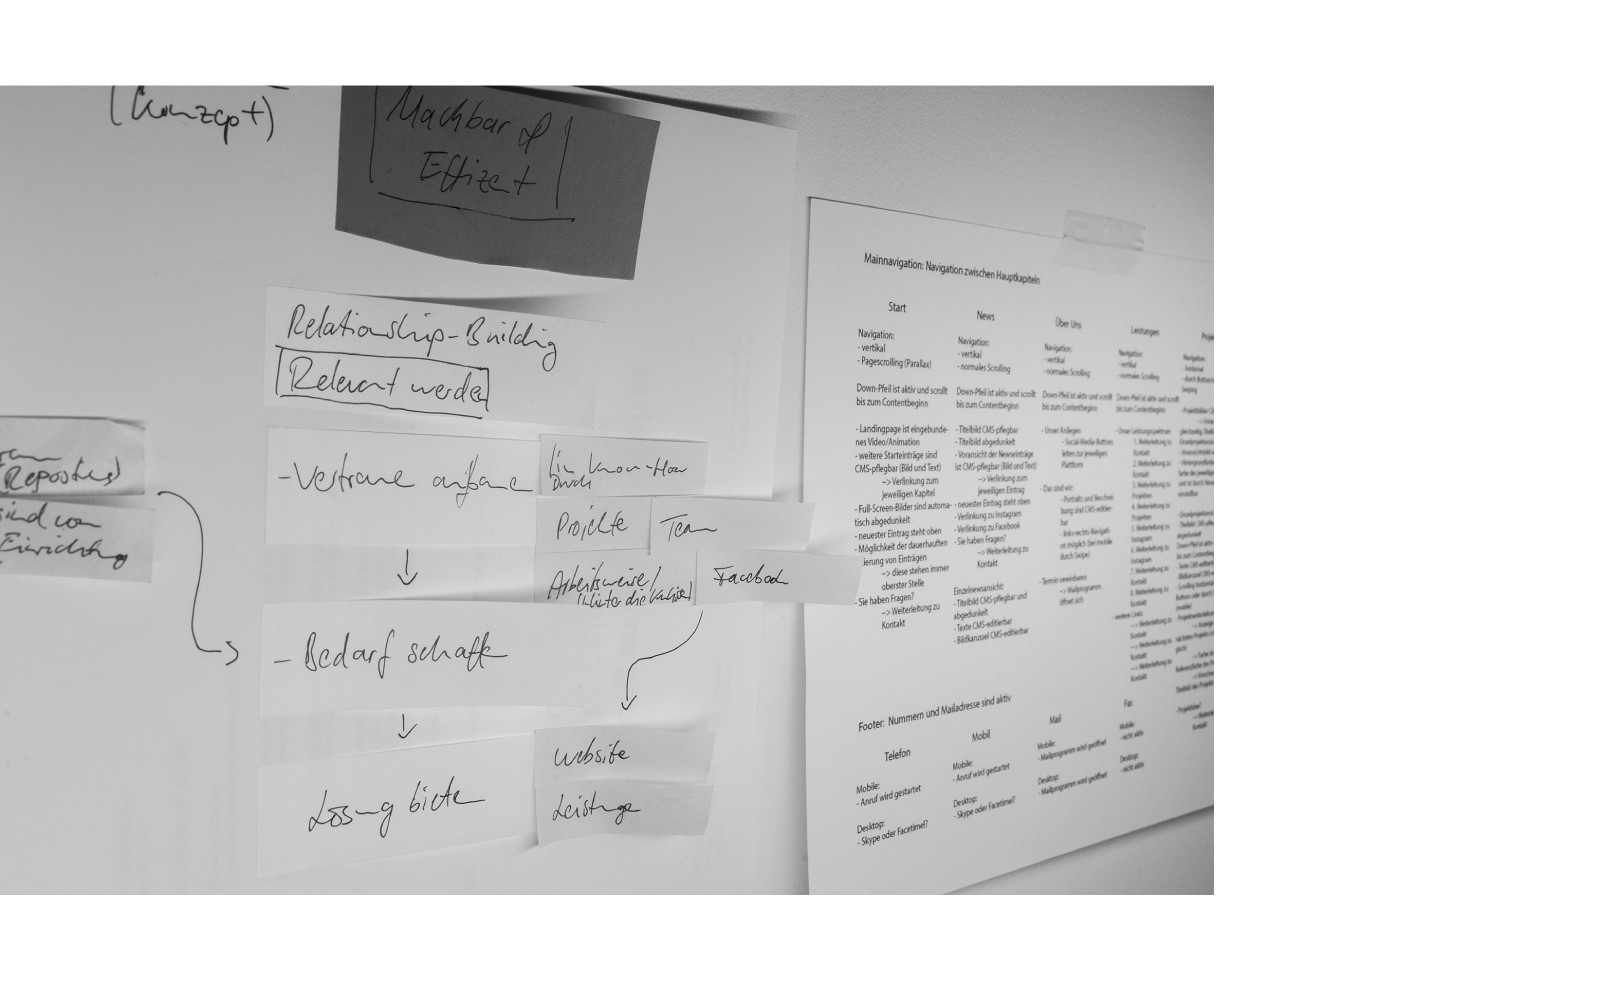 (Konzept)
Machbar &
Effizent
Relationship-Building
Relevant werden
- Vertraue aufbaue
Know-How
Durch
Projekte
Team
Arbeitsweise/
Facebook
(Reposting)
sind von
Einrichtung
- Bedarf schaffe
Lösung biete
Website
Leistunge
Mainnavigation: Navigation zwischen Hauptkapiteln
Start
Navigation:
- vertikal
- Pagescrolling (Parallax)
Down-Pfeil ist aktiv und scrollt
bis zum Contentbeginn
- Landingpage ist eingebunde-
nes Video/Animation
- weitere Starteinträge sind
CMS-pflegbar (Bild und Text)
--> Verlinkung zum
jeweiligen Kapitel
- Full-Screen-Bilder sind automa-
tisch abgedunkelt
- neuester Eintrag steht oben
- Möglichkeit der dauerhaften
ierung von Einträgen
--> diese stehen immer
oberster Stelle
- Sie haben Fragen?
--> Weiterleitung zu
Kontakt
News
Navigation:
- vertikal
- normales Scrolling
Down-Pfeil ist aktiv und scrollt
bis zum Contentbeginn
- Titelbild CMS-pflegbar
- Titelbild abgedunkelt
- Voransicht der Newseinträge
ist CMS-pflegbar (Bild und Text)
--> Verlinkung zum
jeweiligen Eintrag
- neuester Eintrag steht oben
- Verlinkung zu Instagram
- Verlinkung zu Facebook
- Sie haben Fragen?
--> Weiterleitung zu
Kontakt
Einzelnewsansicht:
- Titelbild CMS-pflegbar und
abgedunkelt
- Texte CMS-editierbar
- Bildkarussel CMS-editierbar
Über Uns
Navigation:
- vertikal
- normales Scrolling
Down-Pfeil ist aktiv und scrollt
bis zum Contentbeginn
- Unser Anliegen
- Social-Media-Buttons
leiten zur jeweiligen
Plattform
- Das sind wir:
- Portraits und Beschrei-
bung sind CMS-editier-
bar
- links-rechts-Navigati-
on möglich (bei mobile
durch Swipe)
- Termin vereinbaren
--> Mailprogramm
öffnet sich
Leistungen
Navigation:
- vertikal
- normales Scrolling
Down-Pfeil ist aktiv und scrollt
bis zum Contentbeginn
- Unser Leistungsspektrum
1. Weiterleitung zu
Kontakt
2. Weiterleitung zu
Kontakt
3. Weiterleitung zu
Projekten
4. Weiterleitung zu
Projekten
5. Weiterleitung zu
Instagram
6. Weiterleitung zu
Instagram
7. Weiterleitung zu
Kontakt
8. Weiterleitung zu
Kontakt
- weitere Links
--> Weiterleitung zu
Kontakt
--> Weiterleitung zu
Kontakt
--> Weiterleitung zu
Kontakt
Proje
Navigation:
- horizontal
Footer: Nummern und Mailadresse sind aktiv
Telefon
Mobile:
- Anruf wird gestartet
Desktop:
- Skype oder Facetime!?
Mobil
Mobile:
- Anruf wird gestartet
Desktop:
- Skype oder Facetime!?
Mail
Mobile:
- Mailprogramm wird geöffnet
Desktop:
- Mailprogramm wird geöffnet
Fax
Mobile:
- nicht aktiv
Desktop:
- nicht aktiv